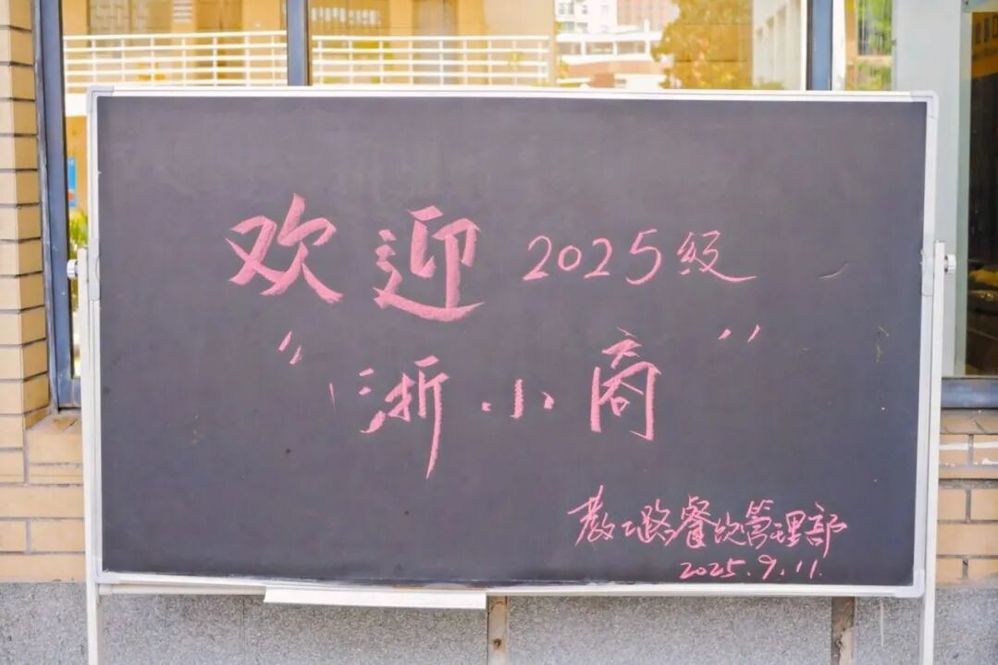 欢迎2025级
“浙小商”
教工路餐饮管理部
2025.9.11.